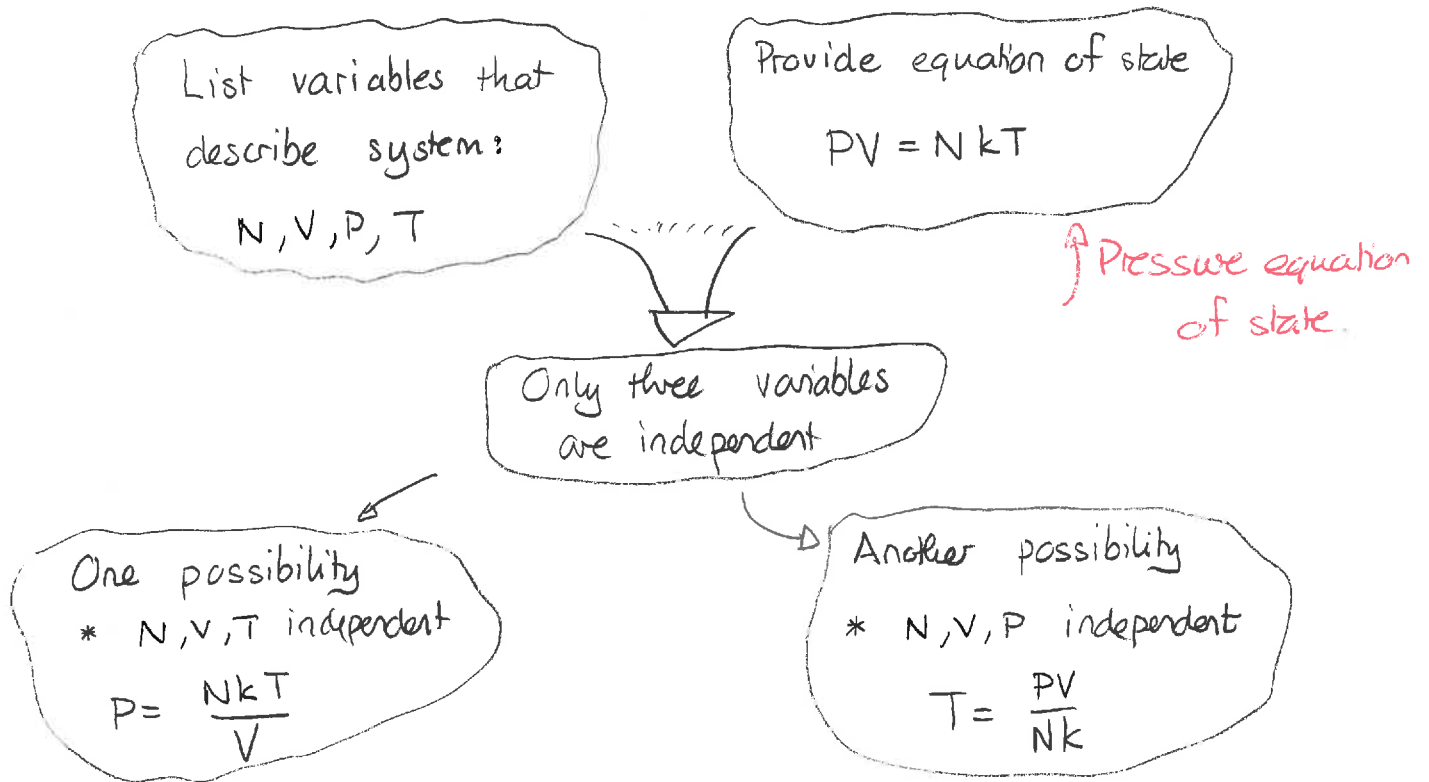 List variables that
describe system:
N, V, P, T
Provide equation of state
PV = NkT
Pressure equation
of state.
Only three variables
are independent
One possibility
* N, V, T independent
P = NkT / V
Another possibility
* N, V, P independent
T = PV / Nk